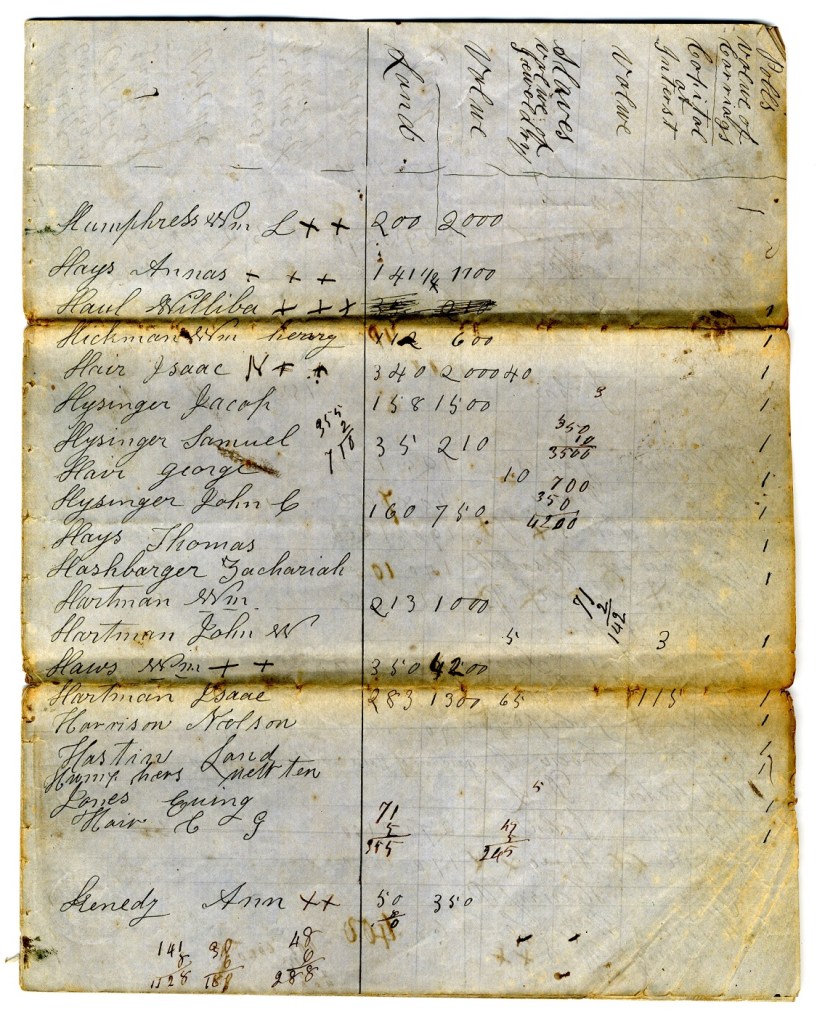 Land
Volwe
Slaves
volwe of
Jeweldry
Volwe
Copital
at
Intirst
Polls
volwe of
Carriags
Humphress Wm L + + 200 2000 1
Hays Annas + + + 141 1/2 1100
Haul Williba + + + 1
Hickman Wm henry 112 600 1
Hair Isaac N + + 340 2000 40 1
Hysinger Jacop 158 1500 3 1
355
2
710
Hysinger Samuel 35 210 1
350
10
3500
Hair George 10 1
700
350
4200
Hysinger John C 160 750 1
Hays Thomas 1
Hashbarger Zachariah 1
Hartman Wm 213 1000
71
2
142
Hartman John W 5 3 1
Haws Wm + + 350 4200
Hartman Isaac 283 1300 65 115 1
Harrison Nelson 1
Hastin Land 1
Humphers 1
Jones Ewing 5 1
Hair C G 1
71
5
355
245
Kenedy Ann ++ 50 350
141
8
1128
30
6
180
48
6
288